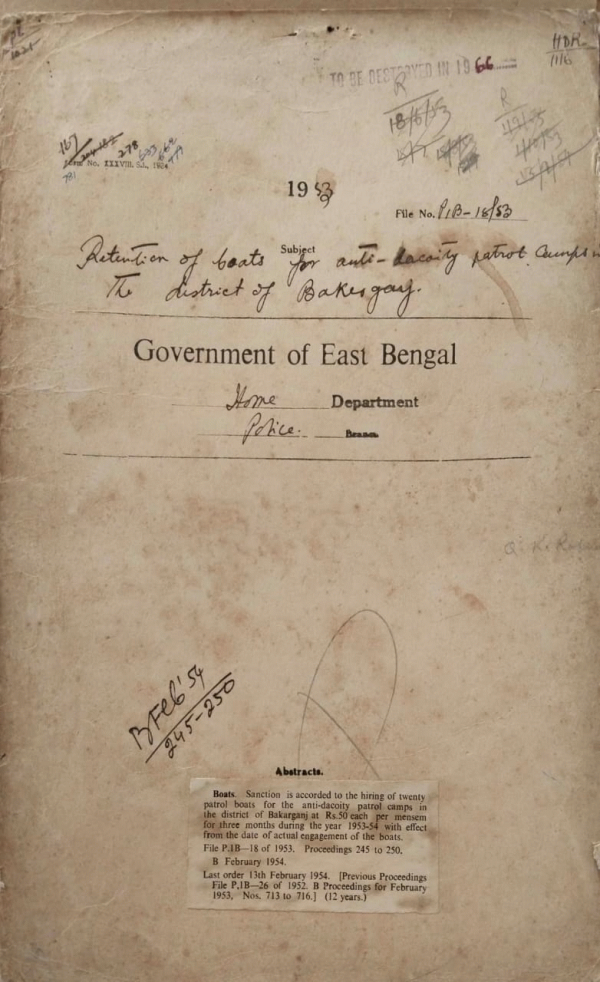 TO BE DESTROYED IN 1966
HDR
1116
R
18/6/53
R
167
278
Form No. XXXVIII.
781
1953
File No. P1B-18/53
Subject
Retention of boats for anti-dacoity patrol camps in
the district of Bakerganj.
Government of East Bengal
Home Department
Police. Branch
B Feb '54
245-250
Abstracts.
Boats. Sanction is accorded to the hiring of twenty
patrol boats for the anti-dacoity patrol camps in
the district of Bakarganj at Rs.50 each per mensem
for three months during the year 1953-54 with effect
from the date of actual engagement of the boats.
File P.1B—18 of 1953. Proceedings 245 to 250,
B February 1954.
Last order 13th February 1954. [Previous Proceedings
File P.1B—26 of 1952. B Proceedings for February
1953, Nos. 713 to 716.] (12 years.)